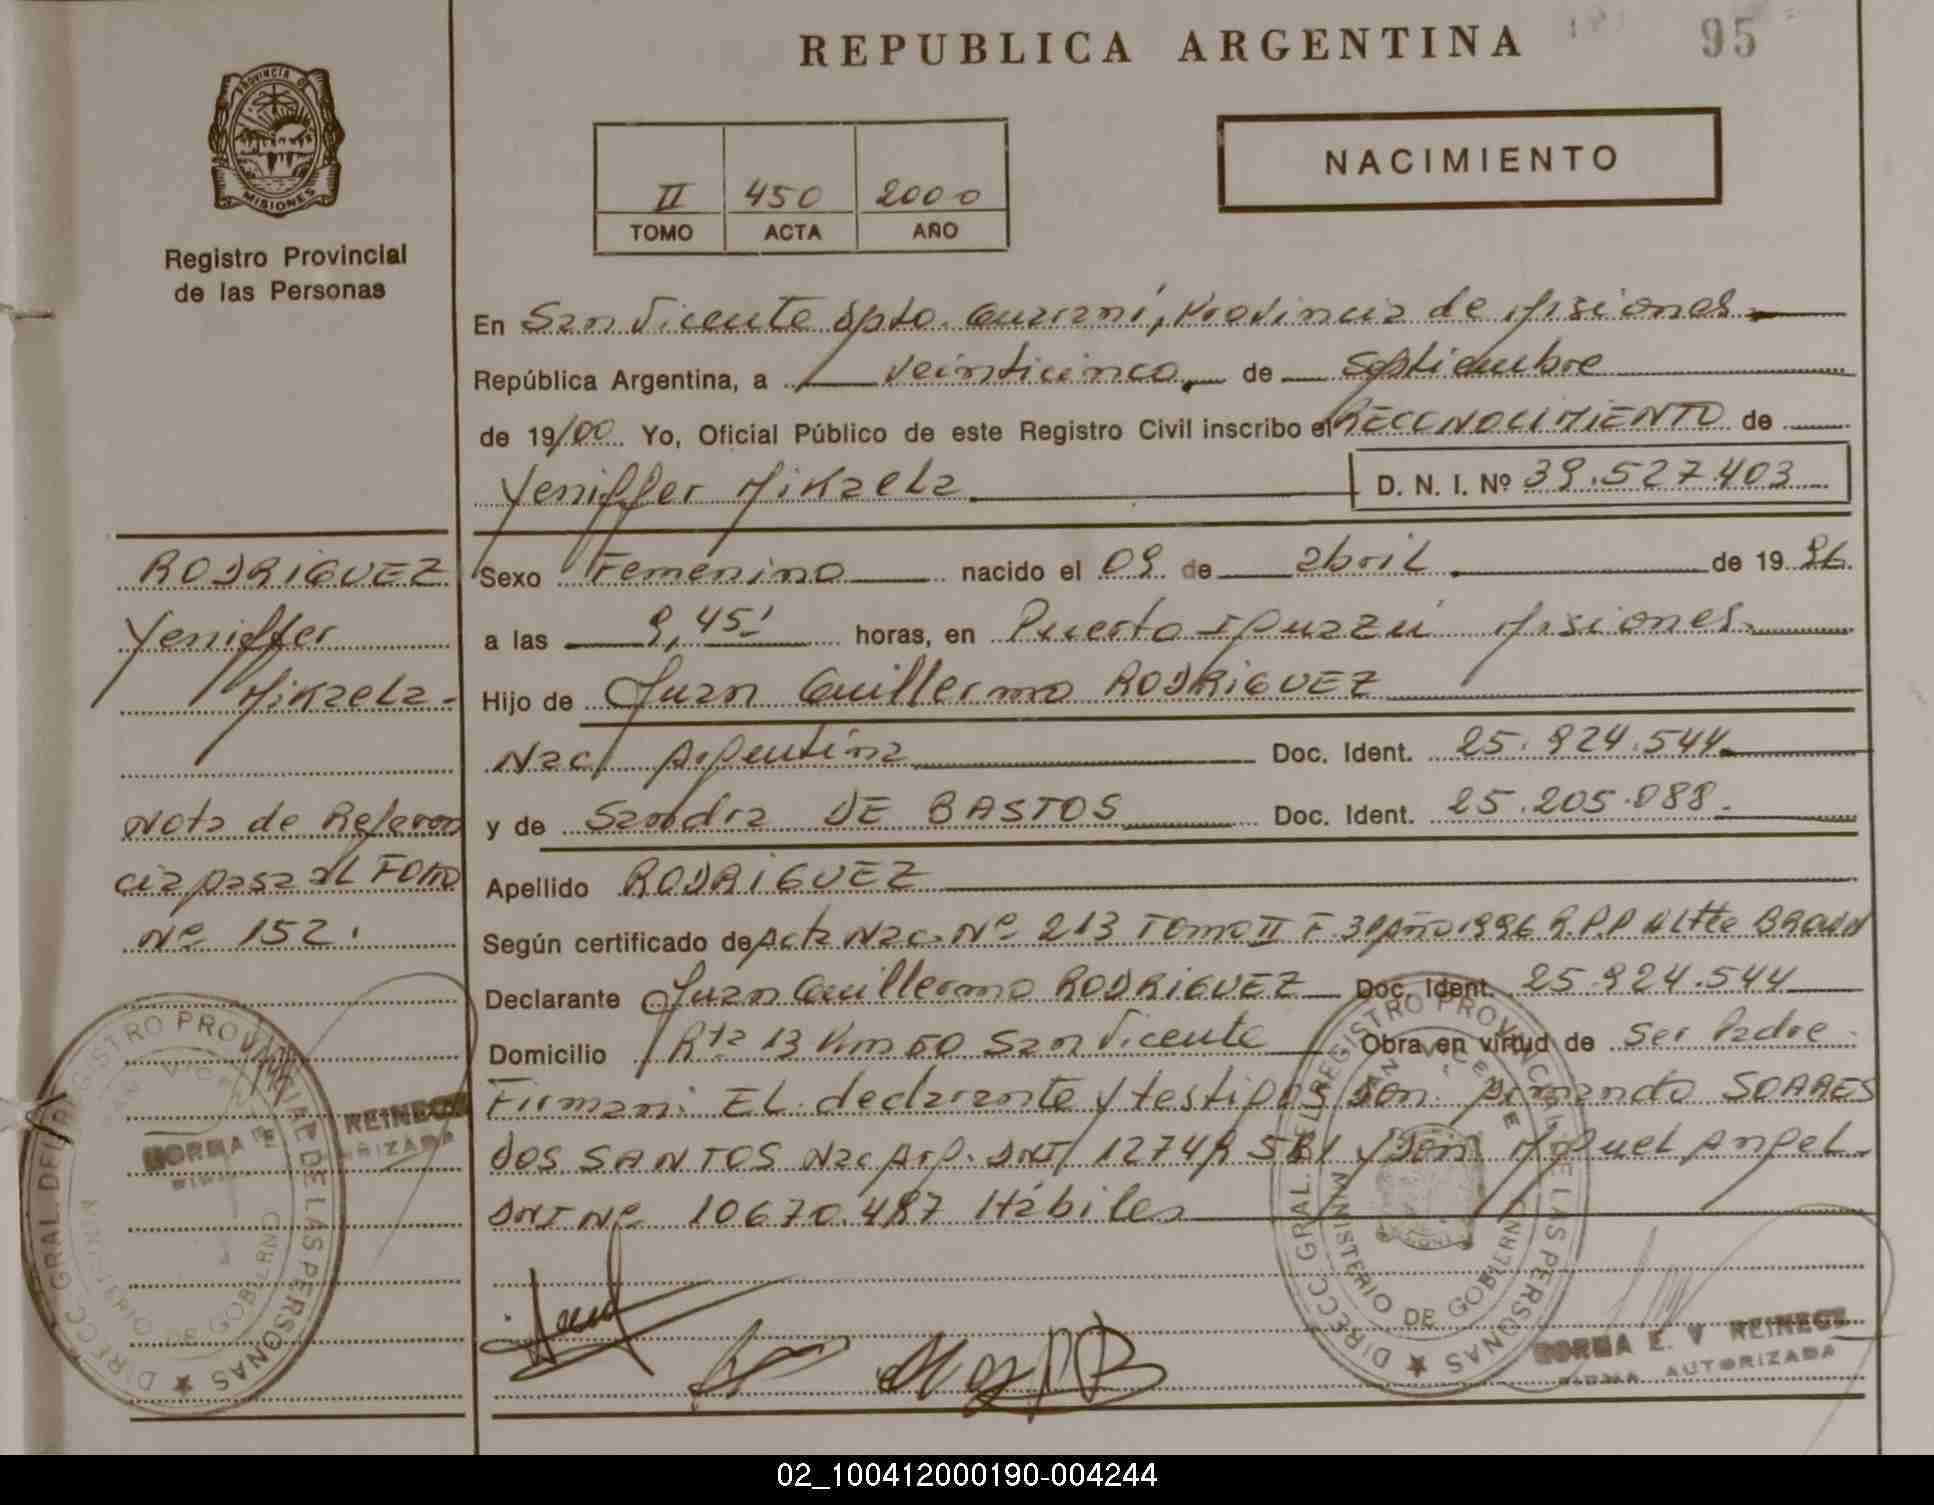 REPUBLICA ARGENTINA
95
PROVINCIA DE
MISIONES
Registro Provincial
de las Personas
NACIMIENTO
II 450 2000
TOMO ACTA AÑO
En San Vicente Dpto. Guaraní, Provincia de Misiones
República Argentina, a veinticinco de Septiembre
de 19/00 Yo, Oficial Público de este Registro Civil inscribo el RECONOCIMIENTO de
Yeniffer Mikaela D. N. I. Nº 39.527.403
Sexo Femenino nacido el 09 de abril de 1996.
a las 9,45' horas, en Puerto Iguazú Misiones
Hijo de Juan Guillermo RODRIGUEZ
Nac/ Argentina Doc. Ident. 25.924.544
y de Sandra DE BASTOS Doc. Ident. 25.205.088.
Apellido RODRIGUEZ
Según certificado de Acta Nac. Nº 213 Tomo II F. Año 1996 R.P.P Altte BROWN
Declarante Juan Guillermo RODRIGUEZ Doc. Ident. 25.924.544
Domicilio Rta 13 Km 50 San Vicente Obra en virtud de Ser Padre
Firman: El declarante y testigos Don: Armando SOARES
DOS SANTOS Nac Arg. DNI/ y Don Miguel Angel
DNI Nº 10670.487 Hábiles
RODRIGUEZ
Yeniffer
Mikaela-
Nota de Referen
cia pasa al Folio
Nº 152.
DIRECC. GRAL. DEL REGISTRO PROVINCIAL DE LAS PERSONAS
SAN VICENTE
MINISTERIO DE GOBIERNO
NORMA E. REINECK
DIRECC. GRAL. DEL REGISTRO PROVINCIAL DE LAS PERSONAS
SAN VICENTE
MINISTERIO DE GOBIERNO
NORMA E. V REINECK
FIRMA AUTORIZADA
02_100412000190-004244